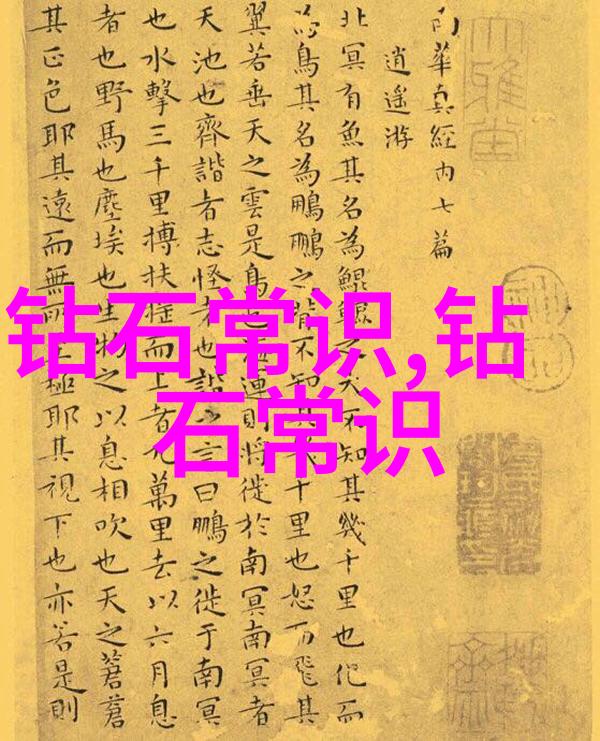 钻石常识,钻
石常识
南華真經内七篇
逍遥游
北冥有魚其名為鯤鯤之大不知其幾千里也化而
為鳥其名為鵬鵬之背不知其幾千里也怒而飛其
翼若垂天之雲是鳥也海運則將徙於南冥南冥者
天池也齊諧者志怪者也諧之言曰鵬之徙于南冥
也水擊三千里搏扶揺而上者九萬里去以六月息
者也野馬也塵埃也生物之以息相吹也天之蒼蒼
其正色耶其遠而無所至極耶其視下也亦若是則
大雅堂